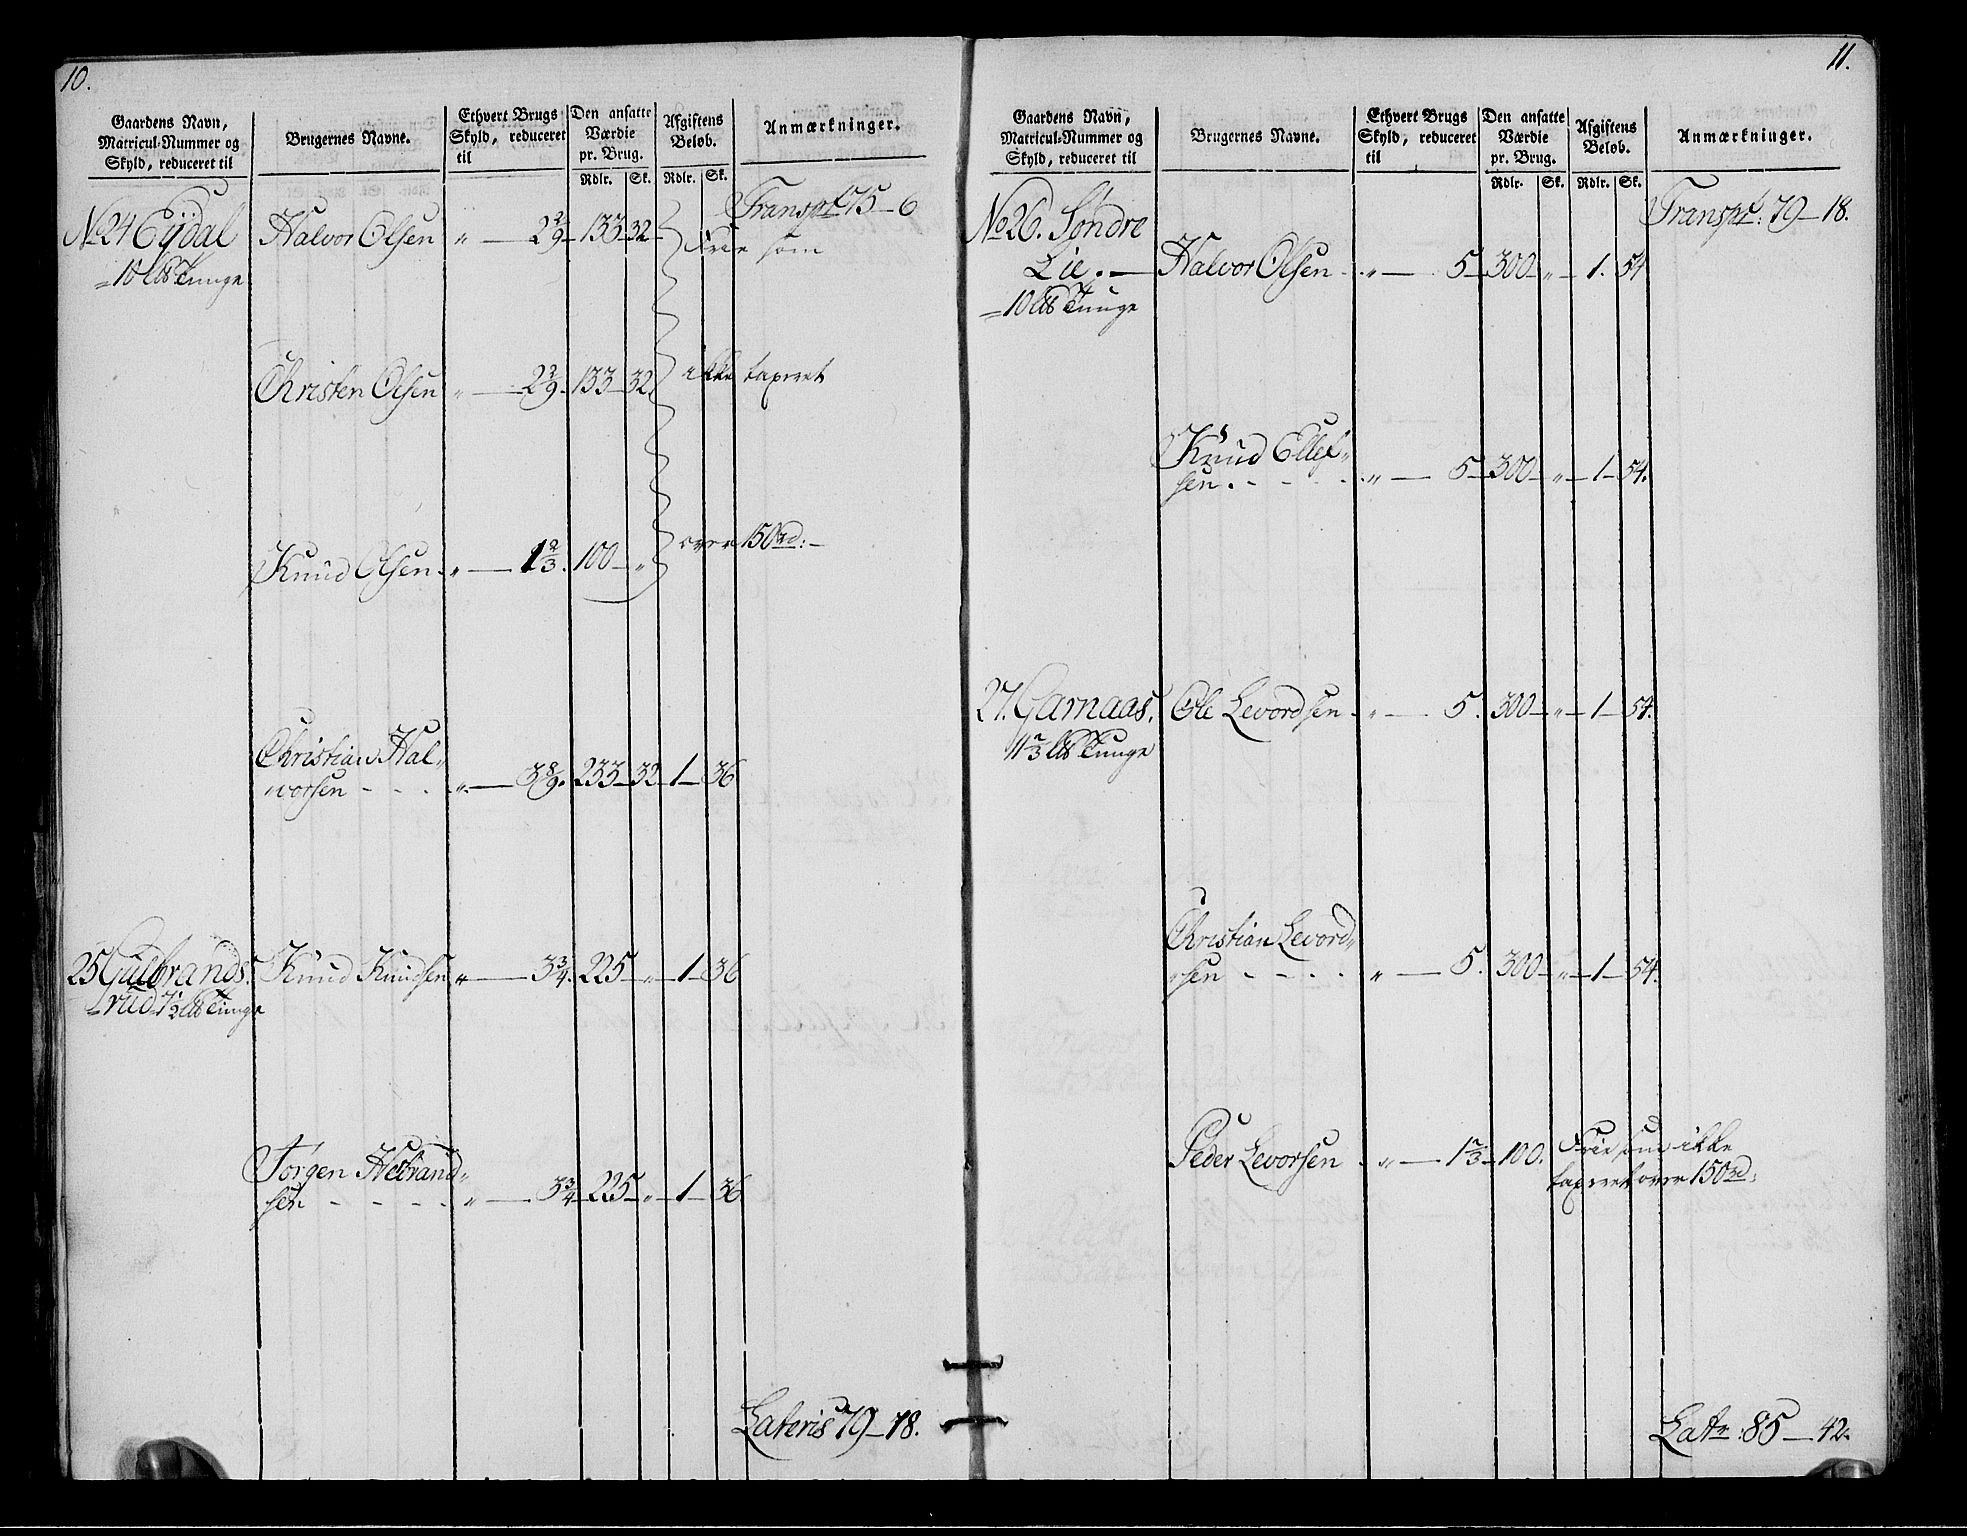 10.
Gaardens Navn, Matricul-Nummer og Skyld, reduceret til
Brugernes Navne.
Ethvert Brugs Skyld, reduceret til
Den ansatte Værdie pr. Brug.
Rdlr. Sk.
Afgiftens Beløb.
Rdlr. Sk.
Anmærkninger.
Transpt 75 - 6
No 24 Eÿdal Halvor Olsen „ — 2 2/9 - 133 - 32 - Frie som
10 Tunge
Christen Olsen „ — 2 2/9 - 133 - 32 ikke taxeret
Knud Olsen „ — 1 2/3 . 100 - „ over 150 rd: -
Christian Hal-
vorsen - - - „ — 3 8/9 . 233 - 32 - 1 - 36
25 Gulbrands- Knud Knudsen „ — 3 3/4 . 225 - „ - 1 - 36
rud 7 1/2 Tunge
Jørgen Helbrand-
sen - - - - - „ — 3 3/4 - 225 - „ - 1 - 36
Lateris 79 - 18.
11.
Gaardens Navn, Matricul-Nummer og Skyld, reduceret til
Brugernes Navne.
Ethvert Brugs Skyld, reduceret til
Den ansatte Værdie pr. Brug.
Rdlr. Sk.
Afgiftens Beløb.
Rdlr. Sk.
Anmærkninger.
Transpt: 79 - 18.
No 26. Søndre
Lie. — Halvor Olsen - „ — 5 - 300 - „ - 1. 54
10 Tunge
Knud Ellef-
sen. - - - - „ — 5 - 300 - „ - 1 - 54.
27. Garnaas. Ole Levordsen - „ — 5. 300 - „ - 1 - 54.
11 2/3 Tunge
Christian Levord-
sen - - - - „ — 5. 300 - „ - 1 - 54.
Peder Levorsen - „ — 1 2/3 - 100. Frie som ikke
taxeret over 150 rd:
Latr: 85 - 42.